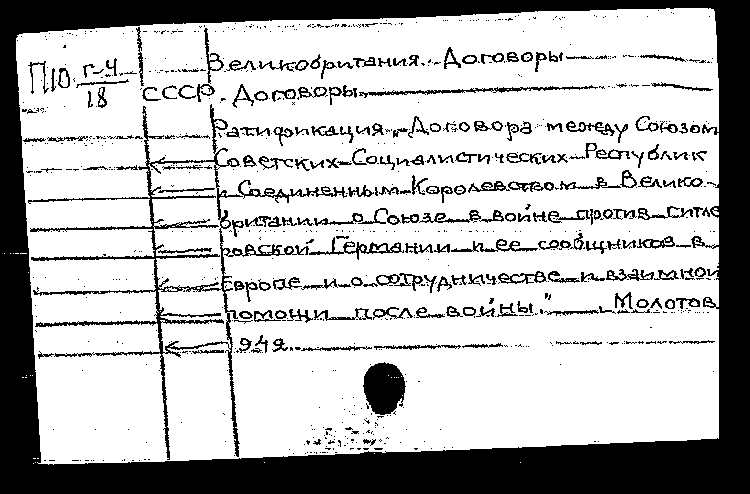 П10 г-4 Великобритания. Договоры
18 СССР. Договоры.
Ратификация „Договора между Союзом
Советских Социалистических Республик
и Соединенным Королевством в Велико-
британии о Союзе в войне против гитле
ровской Германии и ее сообщников в
Европе и о сотрудничестве и взаимной
помощи после войны." Молотов